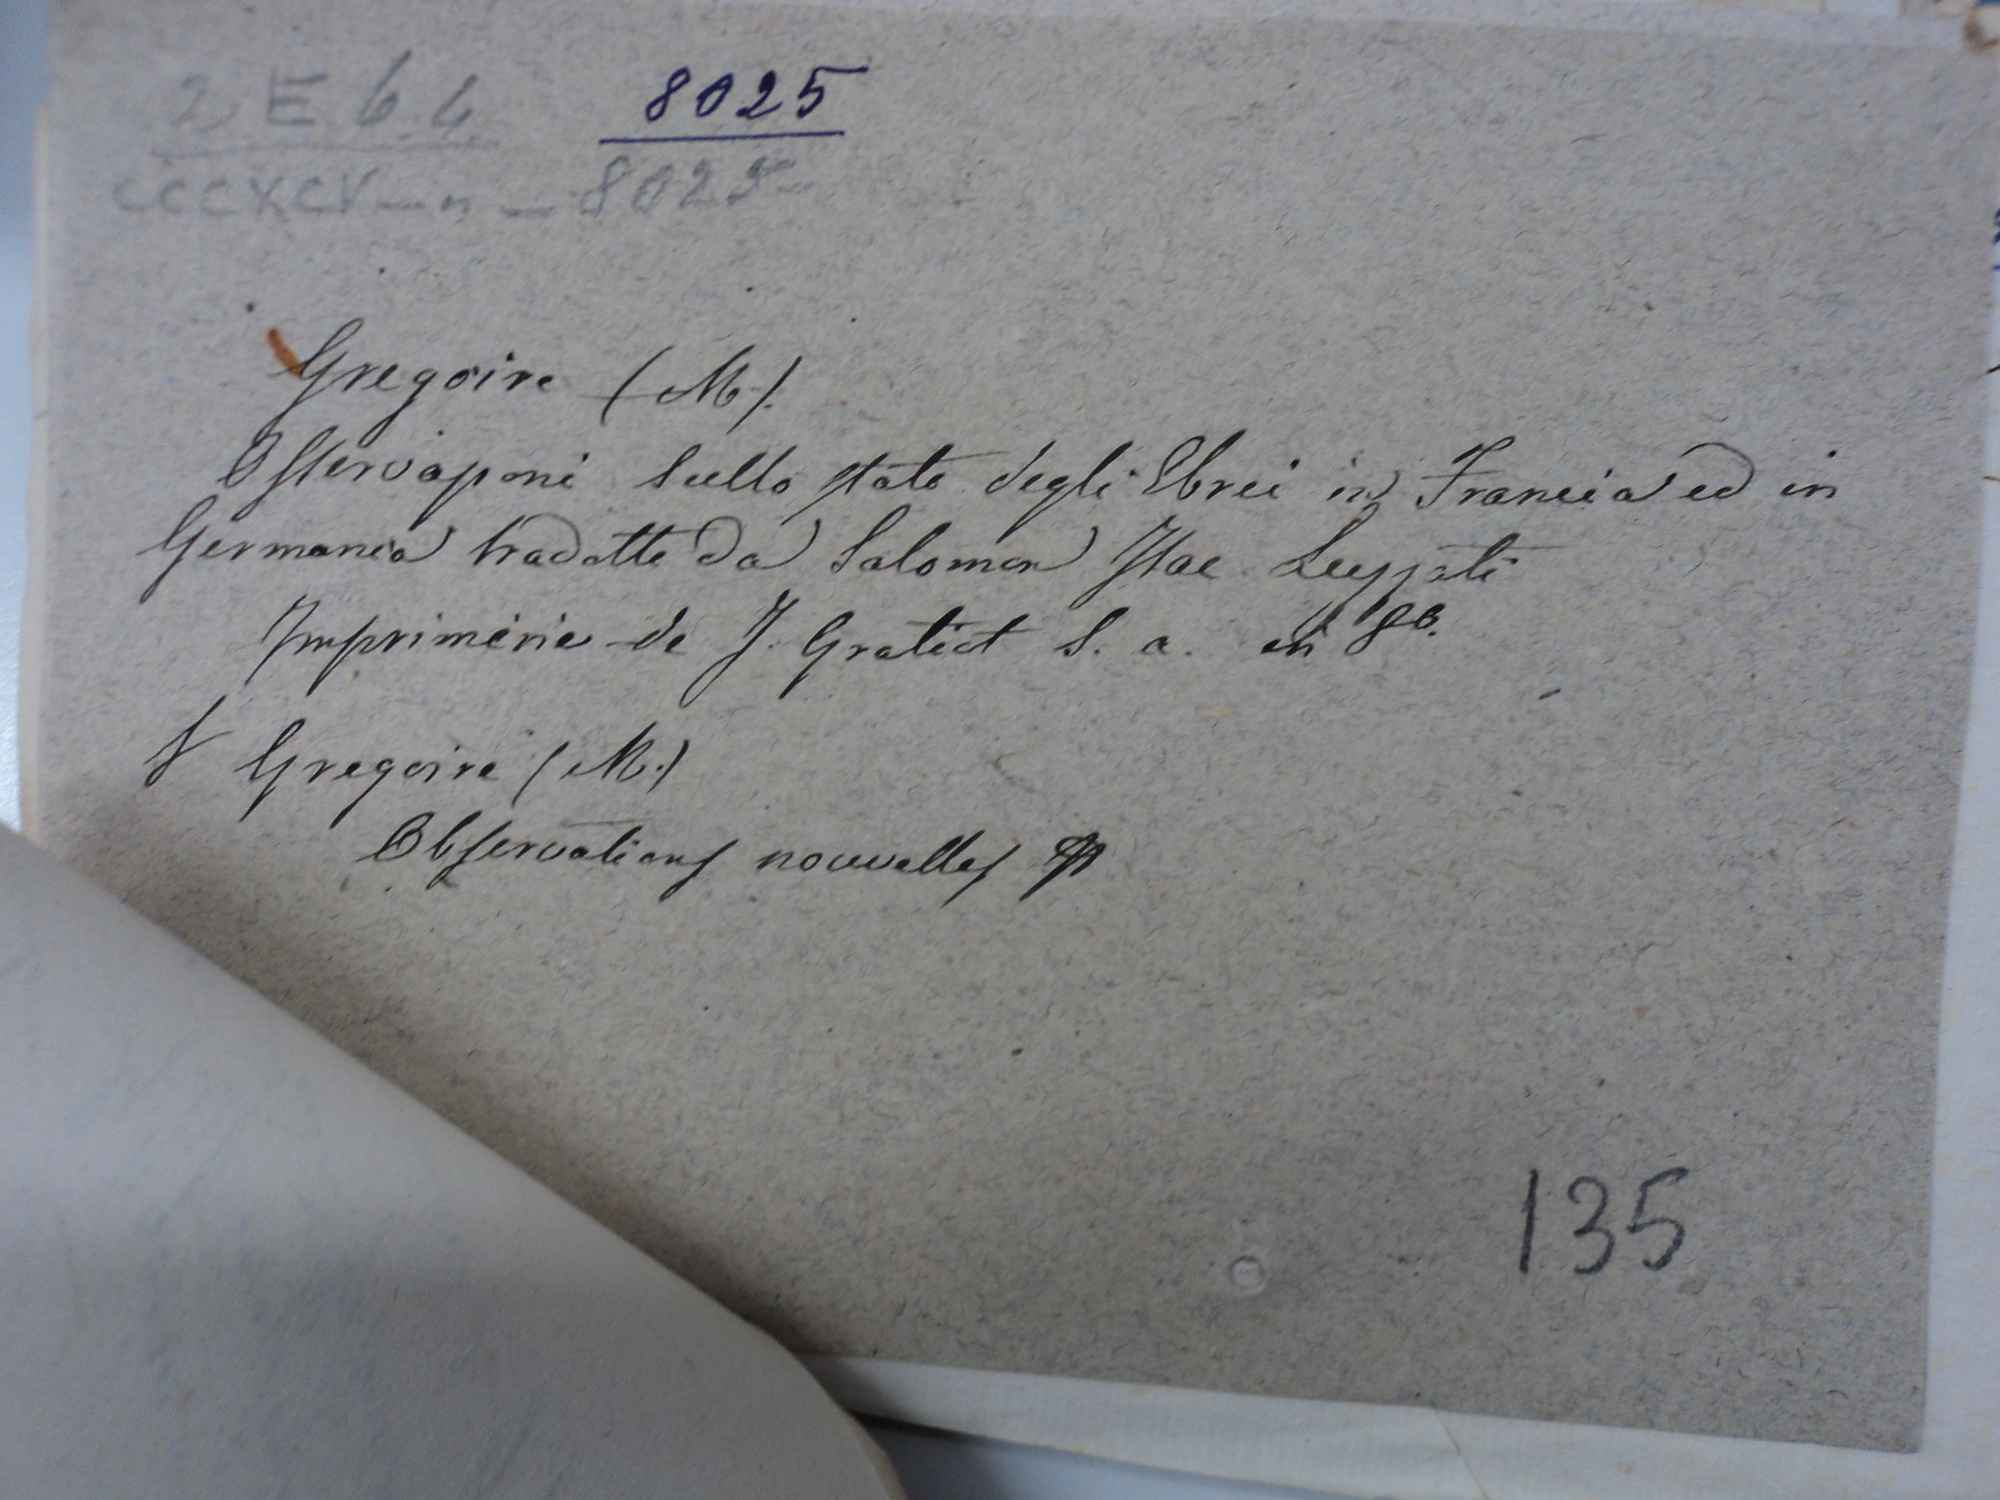 2 E 6.4 8025
CCCXCV — n — 8025
Gregoire (M.).
Osservazioni sullo stato degli Ebrei in Francia ed in
Germania tradotte da Salomon Isac
Imprimerie de J. Gratiot S. a. in 8o.
Gregoire (M.)
Observations nouvelles
135